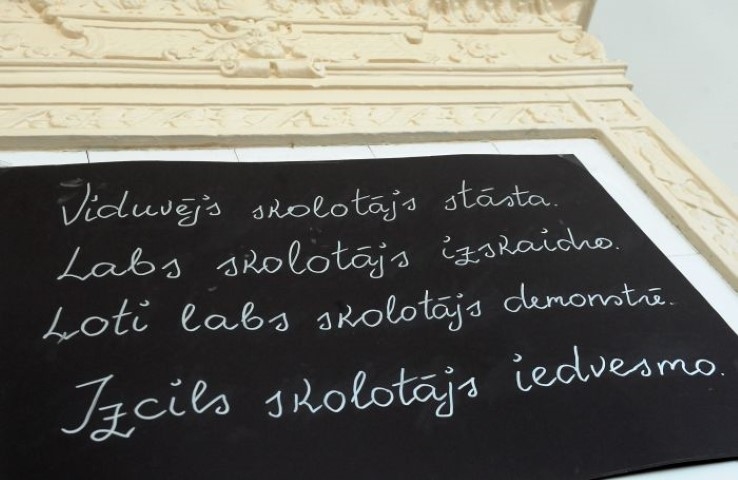 Viduvējs skolotājs stāsta.
Labs skolotājs izskaidro.
Ļoti labs skolotājs demonstrē.
Izcils skolotājs iedvesmo.